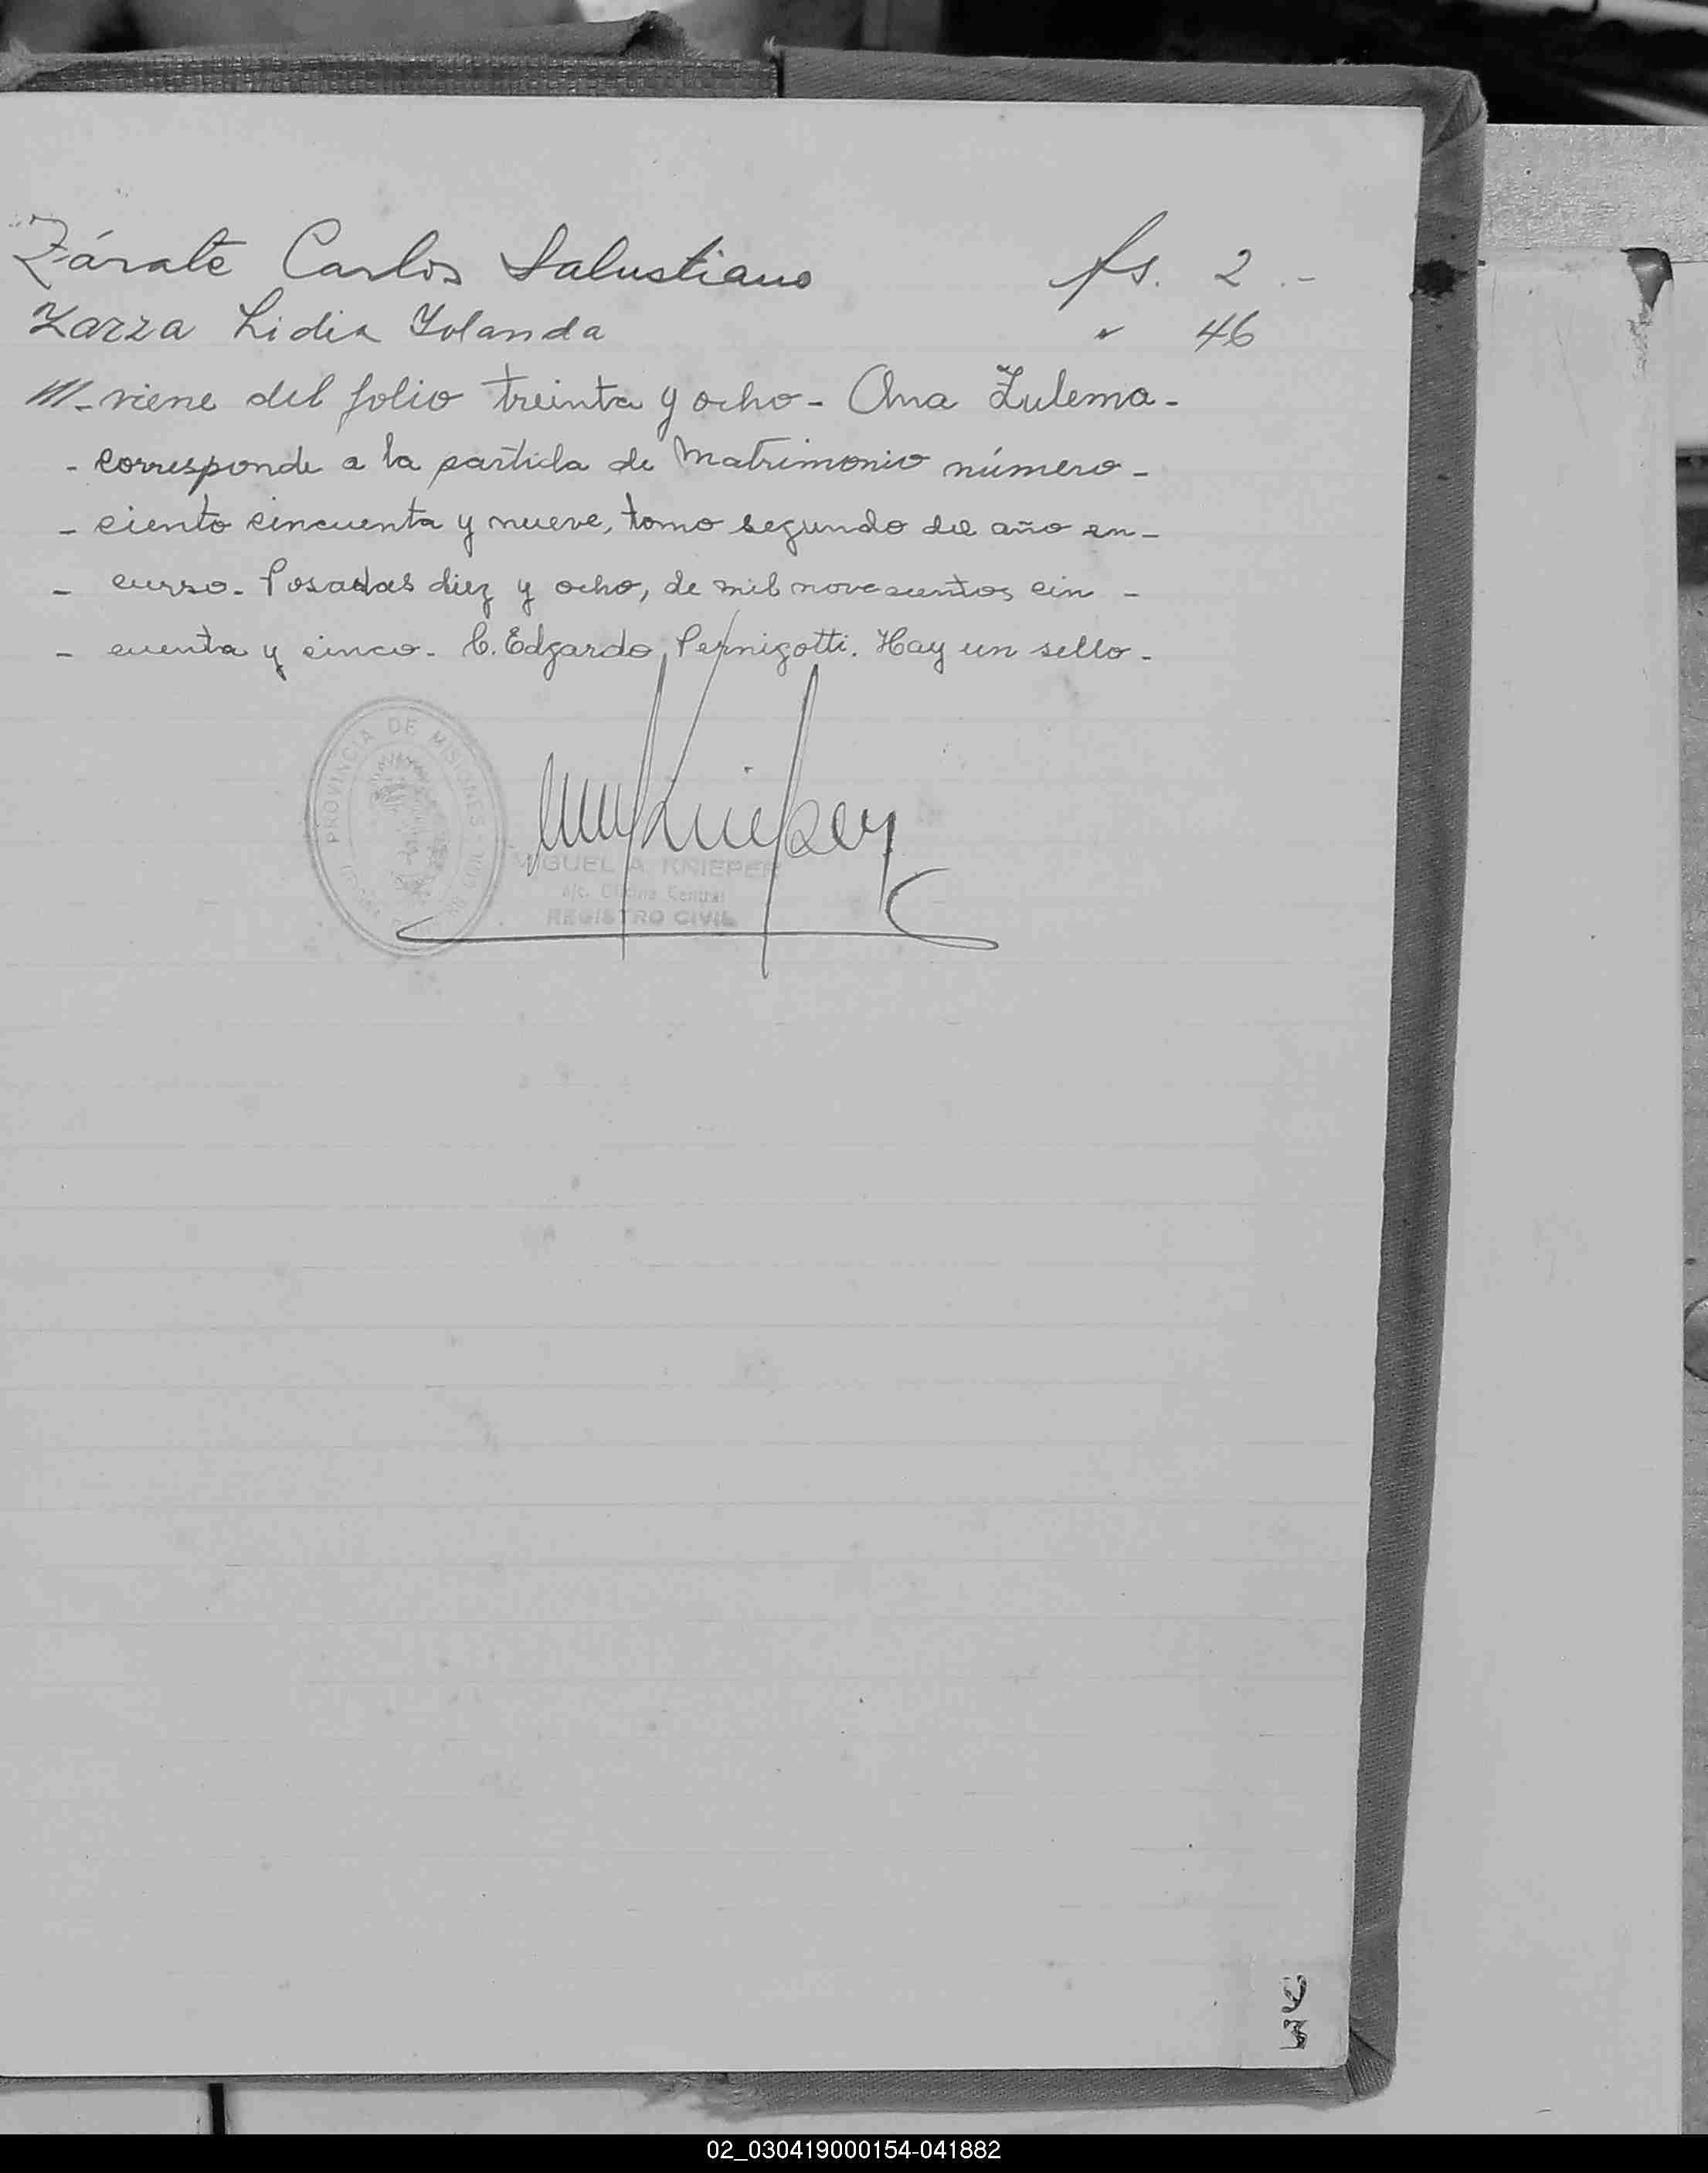 Zárate Carlos Salustiano fs. 2.-
Zarza Lidia Yolanda " 46
///-viene del folio treinta y ocho- Ana Zulema-
- corresponde a la partida de Matrimonio número-
- ciento cincuenta y nueve, tomo segundo del año en-
- curso. Posadas diez y ocho, de mil novecientos cin -
- cuenta y cinco. C. Edgardo Pernigotti. Hay un sello-
PROVINCIA DE MISIONES
MIGUEL A. KNIEPER
a/c. Oficina Central
REGISTRO CIVIL
02_030419000154-041882